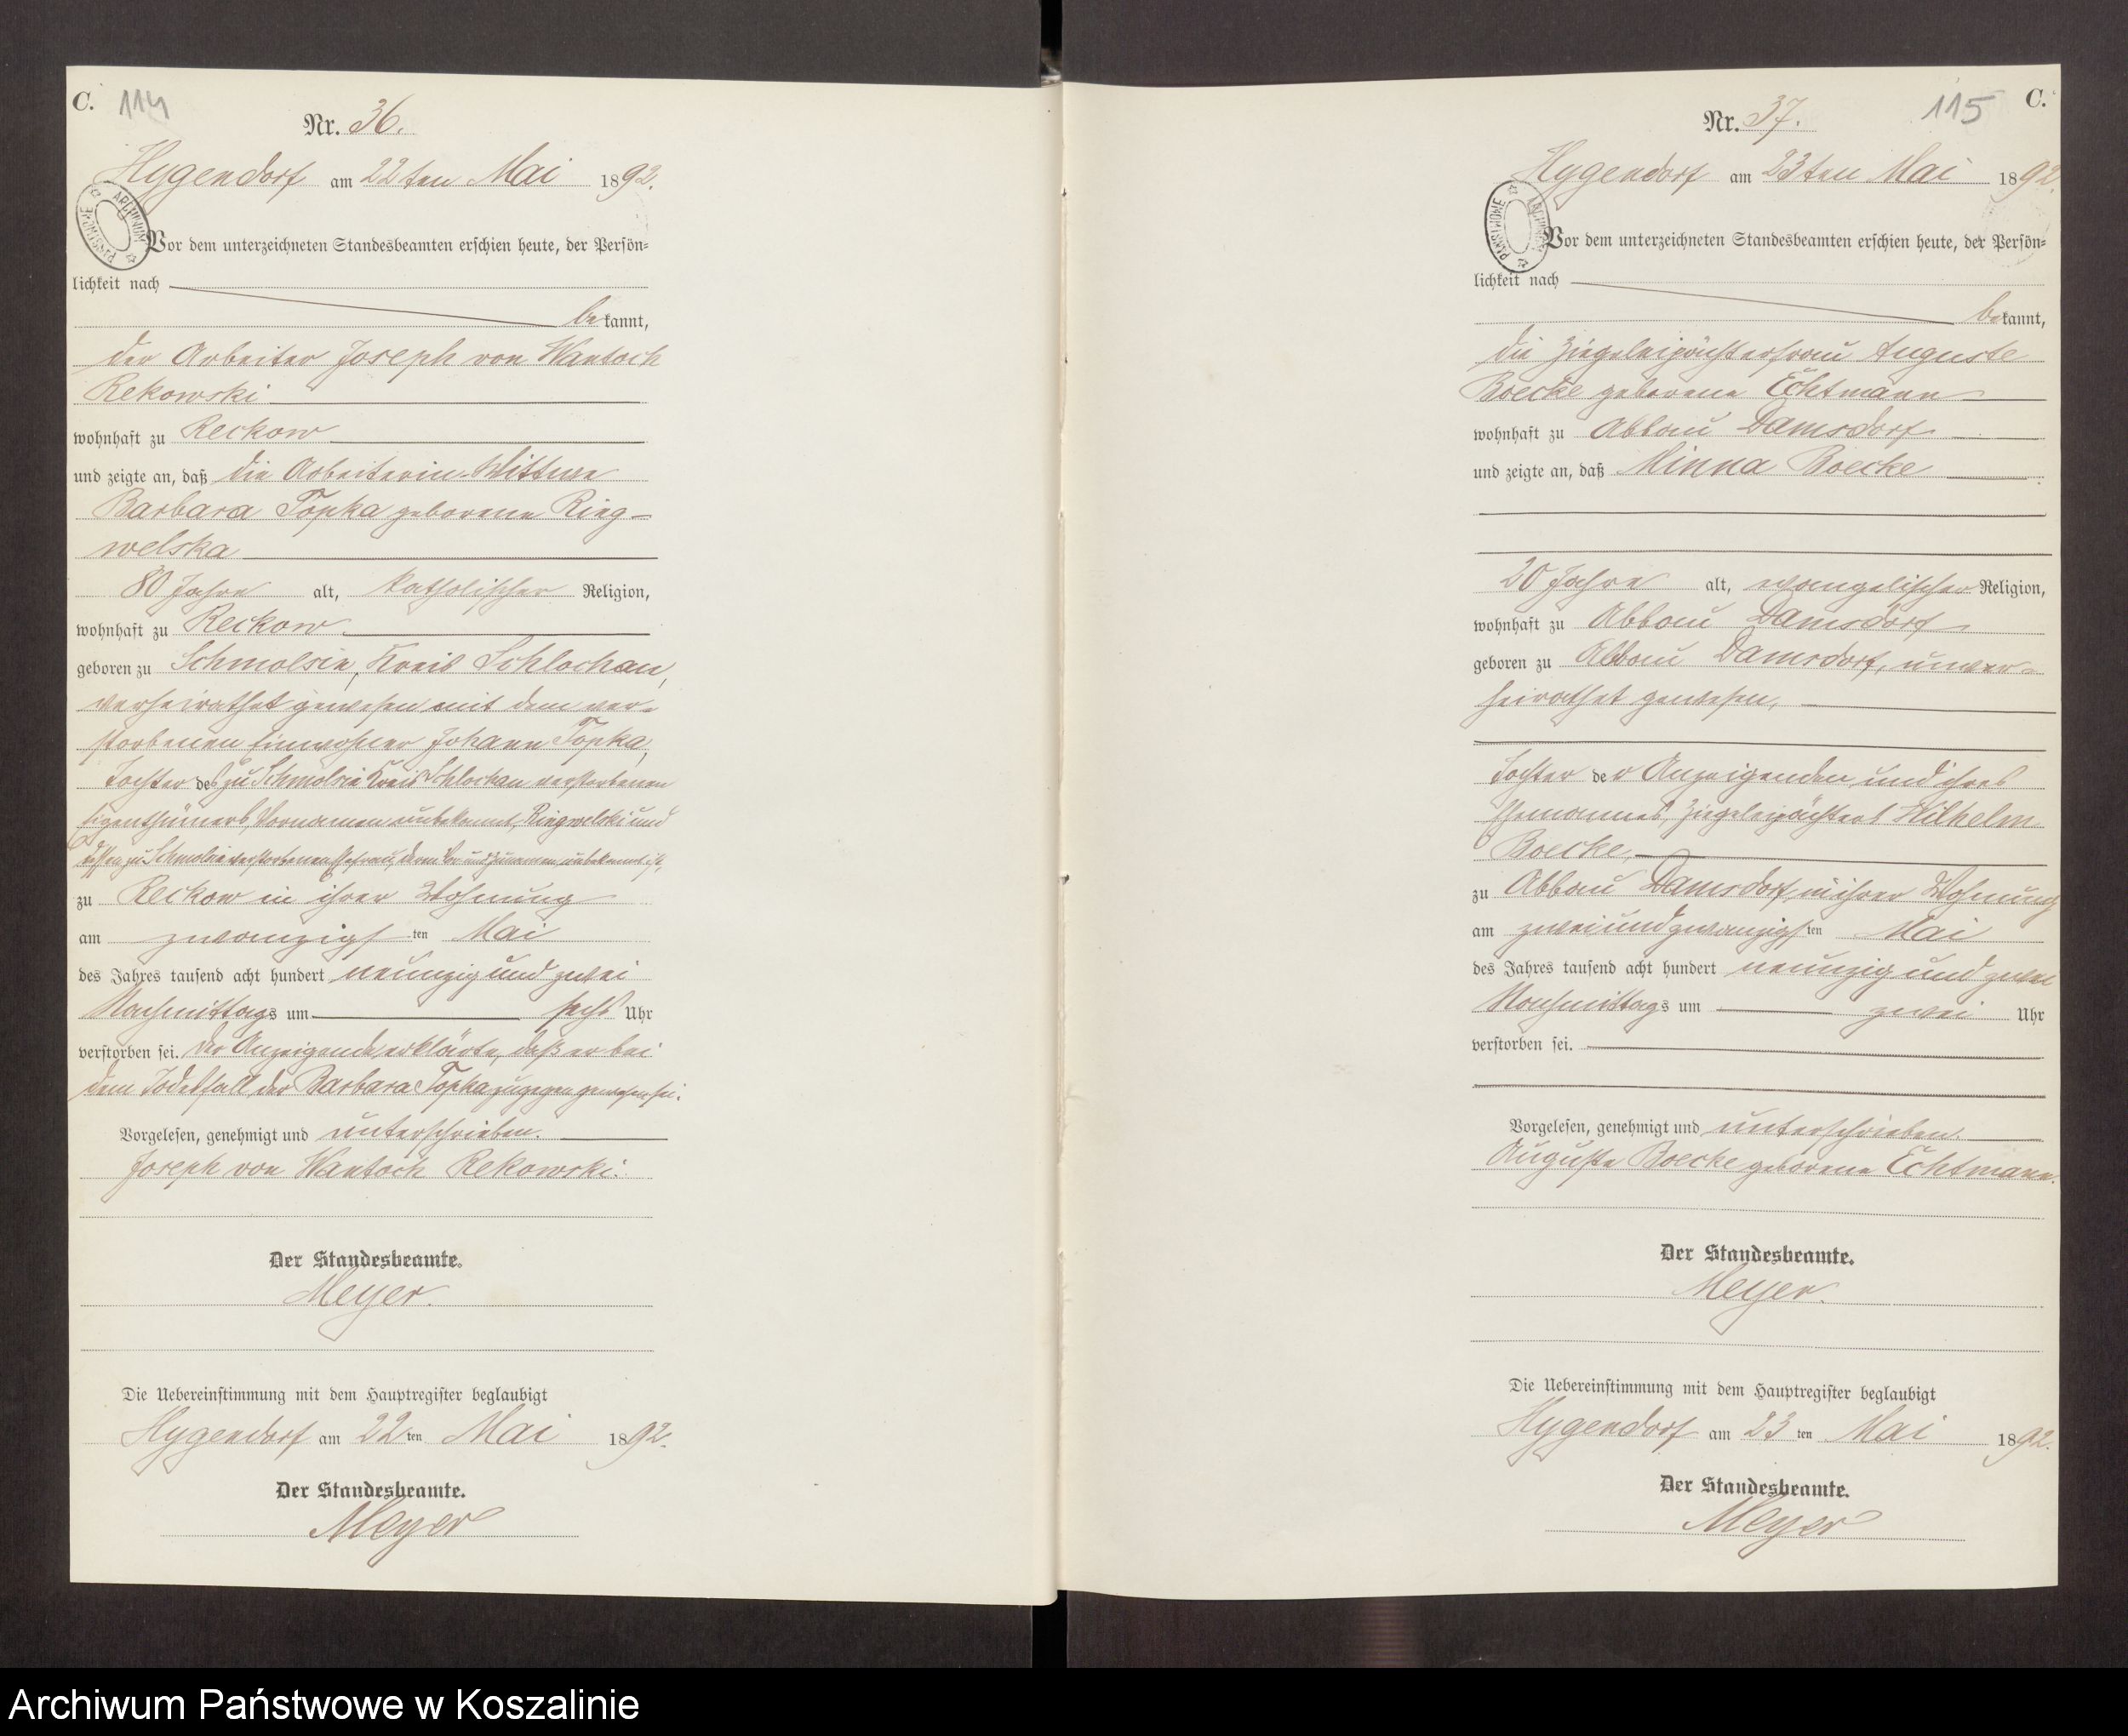 C. 114
Nr. 36.
Hygendorf am 22ten Mai 1892.
Vor dem unterzeichneten Standesbeamten erschien heute, der Persön=
lichkeit nach
bekannt,
der Arbeiter Joseph von Wantoch
Rekowski
wohnhaft zu Reckow
und zeigte an, daß die Arbeiterin-Wittwe
Barbara Topka geborene Ring-
welska
80 Jahre alt, katholischer Religion,
wohnhaft zu Reckow
geboren zu Schmolsin, Kreis Schlochau,
verheirathet gewesen mit dem ver-
storbenen Einwohner Johann Topka,
Tochter des zu Schmolsin Kreis Schlochau verstorbenen
Eigenthümers, Vornamen unbekannt, Ringwelski und
dessen zu Schmolsin verstorbenen Ehefrau, deren Vor und Zunamen unbekannt ist,
zu Reckow in ihrer Wohnung
am zwanzigsten Mai
des Jahres tausend acht hundert neunzig und zwei
Nachmittags um sechs Uhr
verstorben sei. Der Anzeigende erklärte, daß er bei
dem Todesfall der Barbara Topka zugegen gewesen sei.
Vorgelesen, genehmigt und unterschrieben.
Joseph von Wantoch Rekowski.
Der Standesbeamte.
Meyer.
Die Uebereinstimmung mit dem Hauptregister beglaubigt
Hygendorf am 22ten Mai 1892.
Der Standesbeamte.
Meyer
ARCHIWUM PAŃSTWOWE
115 C.
Nr. 37.
Hygendorf am 23ten Mai 1892.
Vor dem unterzeichneten Standesbeamten erschien heute, der Persön=
lichkeit nach
bekannt,
die Ziegeleipächterfrau Auguste
Boecke geborene Echtmann
wohnhaft zu Abbau Damsdorf
und zeigte an, daß Minna Boecke
20 Jahre alt, evangelischer Religion,
wohnhaft zu Abbau Damsdorf
geboren zu Abbau Damsdorf, unver-
heirathet gewesen,
Tochter der Anzeigenden und ihres
Ehemannes, Ziegeleipächters Wilhelm
Boecke,
zu Abbau Damsdorf, in ihrer Wohnung
am zwei und zwanzigsten Mai
des Jahres tausend acht hundert neunzig und zwei
Nachmittags um zwei Uhr
verstorben sei.
Vorgelesen, genehmigt und unterschrieben.
Auguste Boecke geborene Echtmann.
Der Standesbeamte.
Meyer.
Die Uebereinstimmung mit dem Hauptregister beglaubigt
Hygendorf am 23ten Mai 1892.
Der Standesbeamte.
Meyer
ARCHIWUM PAŃSTWOWE
Archiwum Państwowe w Koszalinie